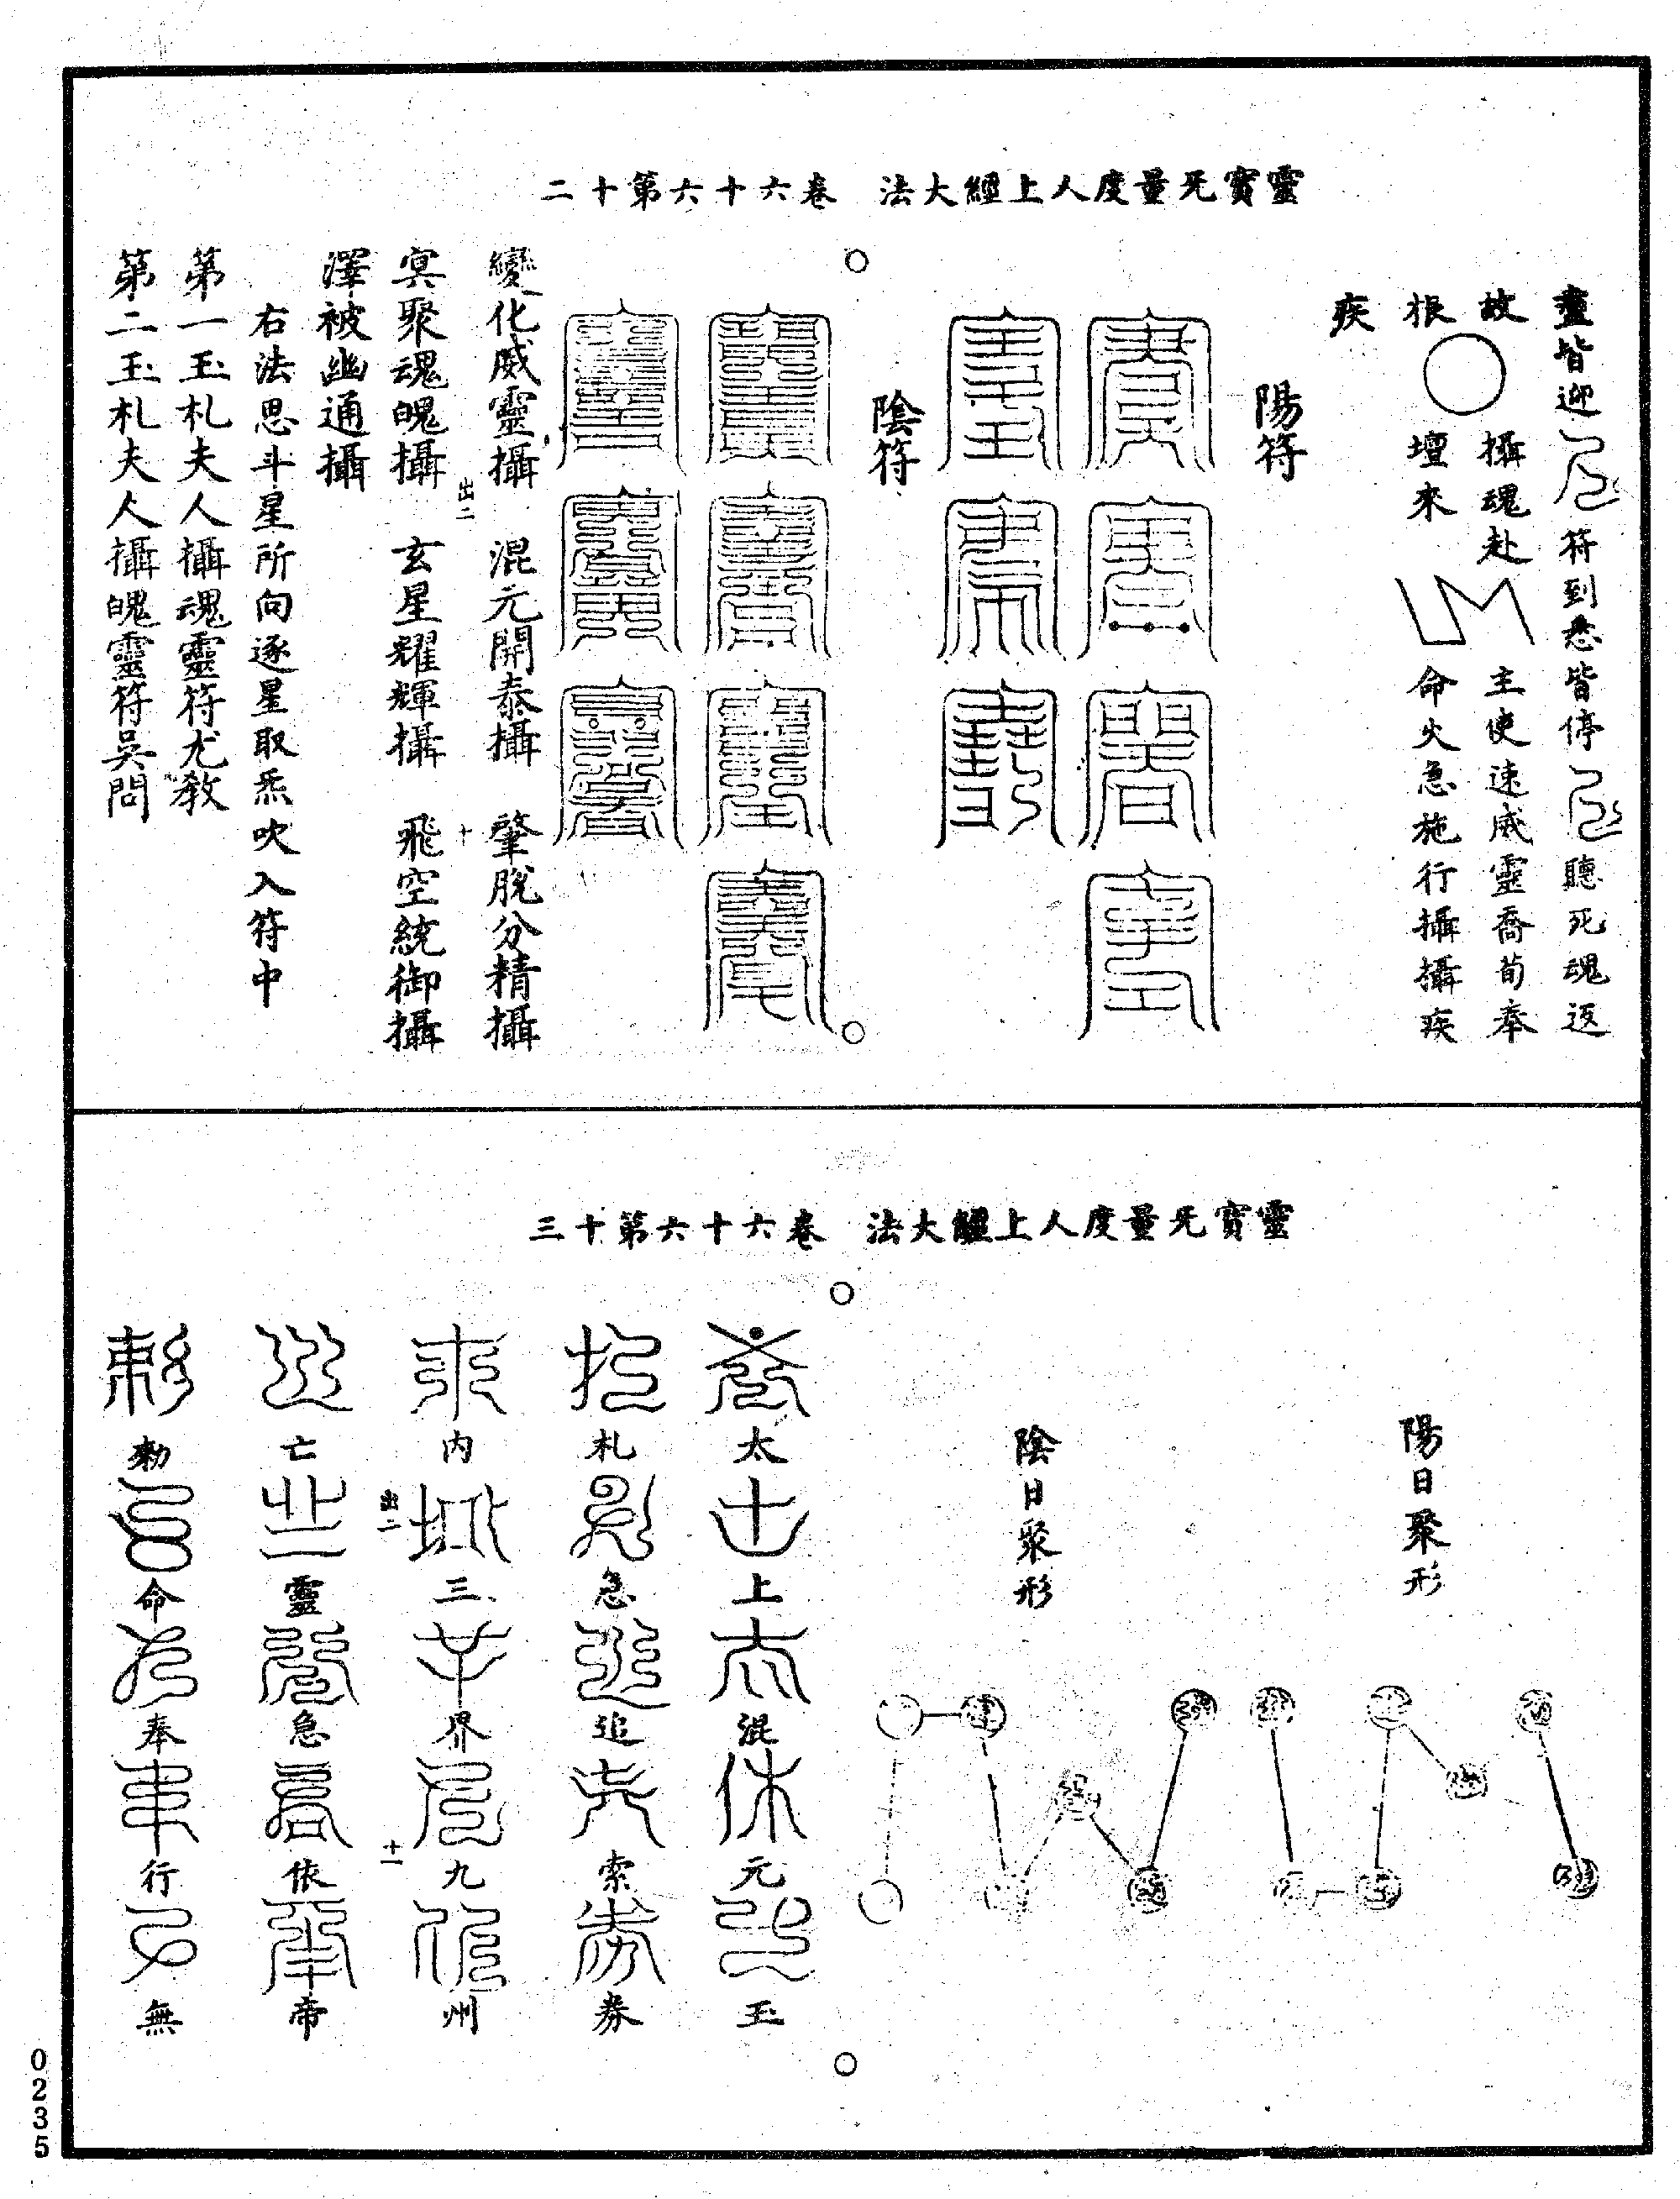 靈寶无量度人上經大法　卷六十六第十二
盡皆迎　符到悉皆停　聽死魂返
故　攝魂赴　主使速威靈喬荀奉
根　壇來　命火急施行攝攝疾
疾
陽符
陰符
變化威靈攝　混元開泰攝　肇脫分精攝
出二　十
㝠聚魂魄攝　玄星耀輝攝　飛空統御攝
澤被幽通攝
右法思斗星所向逐星取炁吹入符中
第一玉札夫人攝魂靈符尤敎
第二玉札夫人攝魄靈符吳問
靈寶无量度人上經大法　卷六十六第十三
陽日聚形
陰日聚形
太上混元玉
札急追索券
内三界九州
出二　十一
亡靈急依帝
勑命奉行無
0235